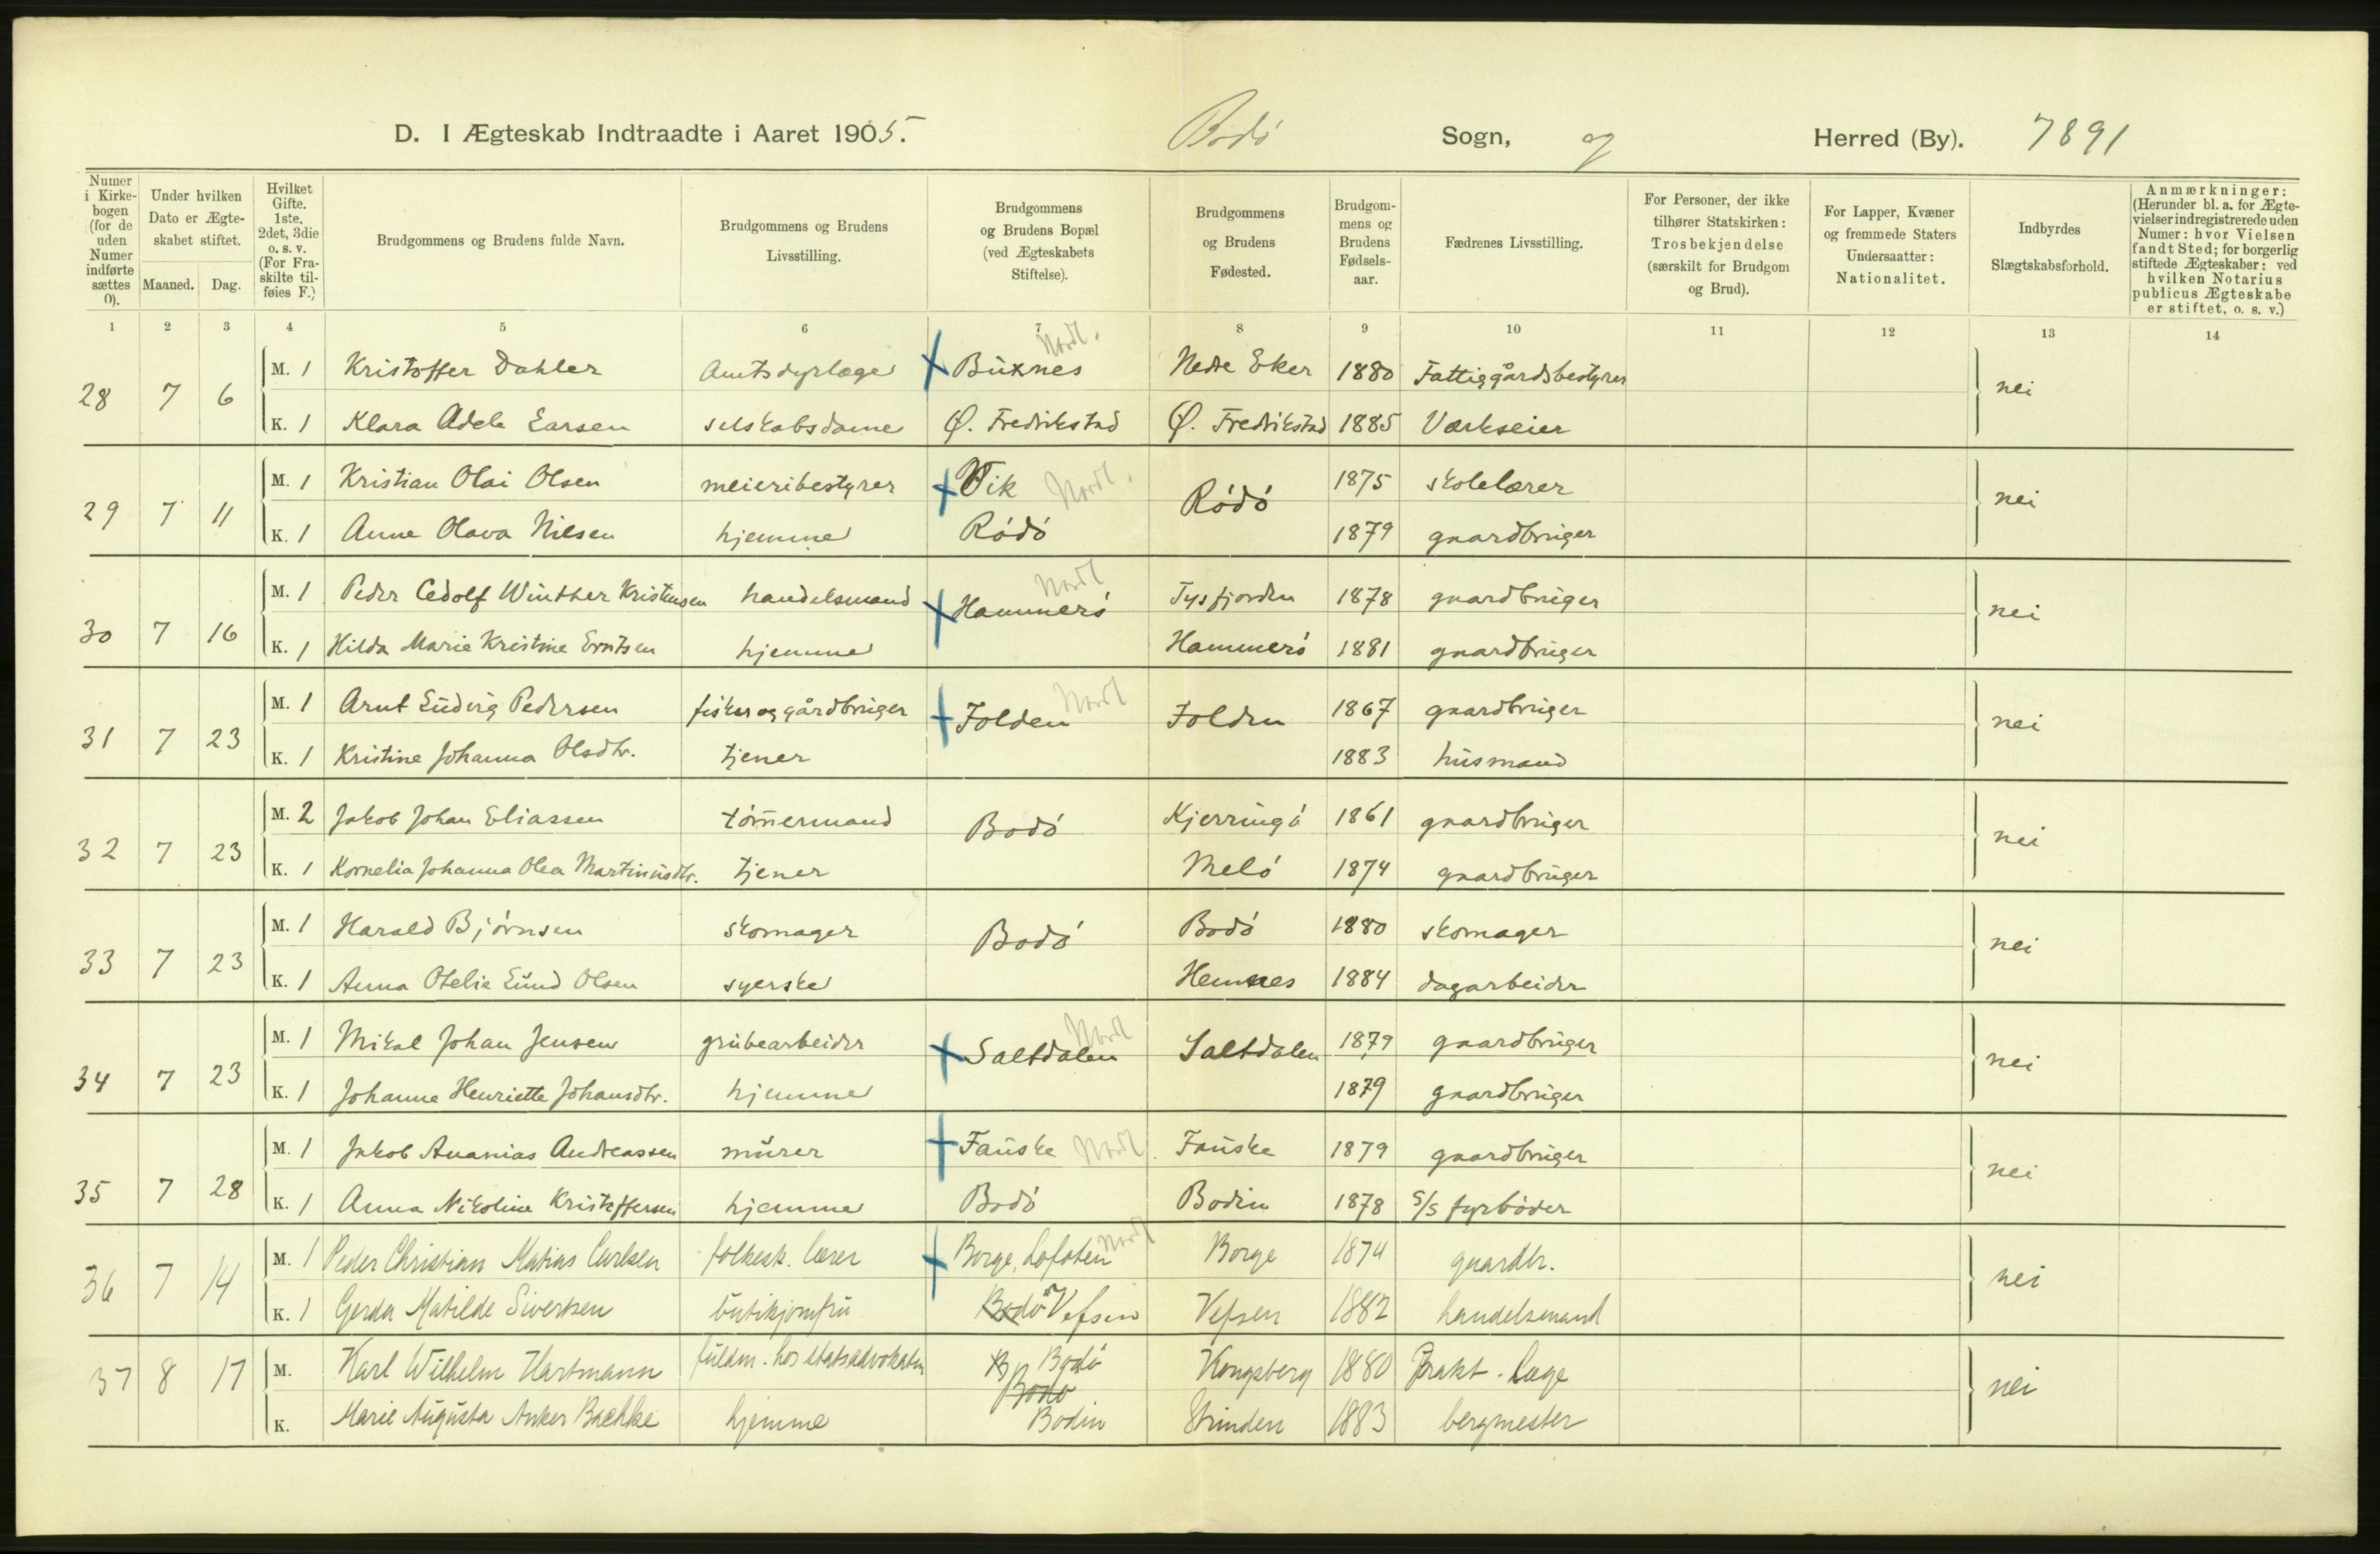 D. I Ægteskab Indtraadte i Aaret 1905. Bodó Sogn, og Herred (By). 7891
Numer i Kirkebogen (for de uden Numer indførte sættes 0).
Under hvilken Dato er Ægteskabet stiftet.
Maaned. Dag.
Hvilket Gifte. 1ste, 2det, 3die o. s. v. (For Fraskilte tilføies F.)
Brudgommens og Brudens fulde Navn.
Brudgommens og Brudens Livsstilling.
Brudgommens og Brudens Bopæl (ved Ægteskabets Stiftelse).
Brudgommens og Brudens Fødested.
Brudgommens og Brudens Fødselsaar.
Fædrenes Livsstilling.
For Personer, der ikke tilhører Statskirken: Trosbekjendelse (særskilt for Brudgom og Brud).
For Lapper, Kvæner og fremmede Staters Undersaatter: Nationalitet.
Indbyrdes Slægtskabsforhold.
Anmærkninger: (Herunder bl. a. for Ægtevielser indregistrerede uden Numer: hvor Vielsen fandt Sted; for borgerlig stiftede Ægteskaber: ved hvilken Notarius publicus Ægteskabe er stiftet, o. s. v.)
1 2 3 4 5 6 7 8 9 10 11 12 13 14
28 7 6 M. 1 Kristoffer Dahler Amtsdyrlæge Buxnes Nordl. Nedre Eker 1880 Fattiggårdsbestyrer nei
K. 1 Klara Adele Larsen selskabsdame Ø. Fredrikstad Ø. Fredrikstad 1885 Værkseier
29 7 11 M. 1 Kristian Olai Olsen meieribestyrer Vik Nordl. Ródó 1875 skolelærer nei
K. 1 Anne Olava Nilsen hjemme Ródó 1879 gaardbruger
30 7 16 M. 1 Peder Cedolf Winther Kristensen handelsmand Hammeró Nordl Tysfjorden 1878 gaardbruger nei
K. 1 Hilda Marie Kristine Erntsen hjemme Hammeró 1881 gaardbruger
31 7 23 M. 1 Arnt Ludvig Pedersen fisker og gårdbruger Folden Nordl Folden 1867 gaardbruger nei
K. 1 Kristine Johanna Olsdtr. tjener 1883 husmand
32 7 23 M. 2 Jakob Johan Eliassen tómmermand Bodó Kjerringó 1861 gaardbruger nei
K. 1 Kornelia Johanna Olea Martinusdtr. tjener Meló 1874 gaardbruger
33 7 23 M. 1 Harald Bjórnsen skomager Bodó Bodó 1880 skomager nei
K. 1 Anna Otelie Lund Olsen syerske Hemnes 1884 dagarbeider
34 7 23 M. 1 Mikal Johan Jensen grubearbeider Saltdalen Nordl Saltdalen 1879 gaardbruger nei
K. 1 Johanne Henriette Johansdtr. hjemme 1879 gaardbruger
35 7 28 M. 1 Jakob Ananias Andreassen murer Fauske Nordl. Fauske 1879 gaardbruger nei
K. 1 Anna Nikoline Kristoffersen hjemme Bodó Bodin 1878 S/S fyrbóder
36 7 14 M. 1 Peder Christian Matias Carlsen folkesk. lærer Borge, Lofoten Nordl Borge 1874 gaardbr. nei
K. 1 Gerda Matilde Sivertsen butikjomfru Bodó Vefsen Vefsen 1882 handelsmand
37 8 17 M. Karl Wilhelm Hartmann fuldm. hos statsadvokaten Bodó Kongsberg 1880 Prakt. læge nei
Bodó
K. Marie Augusta Anker Bachke hjemme Bodin Strinden 1883 bergmester